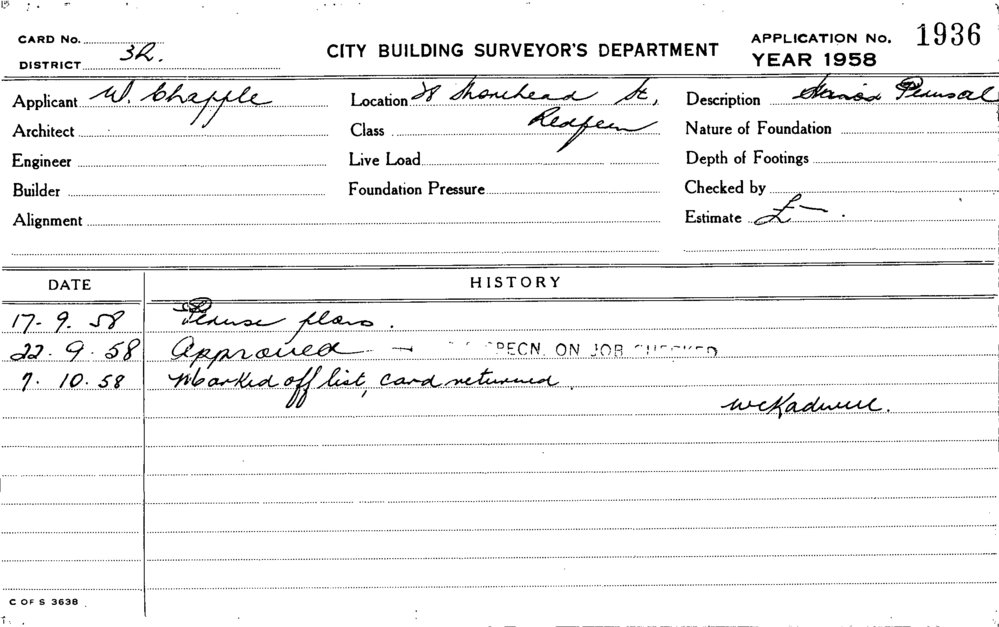 CARD No.
DISTRICT 3R.
CITY BUILDING SURVEYOR'S DEPARTMENT
APPLICATION No. 1936
YEAR 1958
Applicant W. Chapple
Location 28 Morehead St,
Description Perusal
Architect
Class Redfern
Nature of Foundation
Engineer
Live Load
Depth of Footings
Builder
Foundation Pressure
Checked by
Alignment
Estimate £—.
DATE
HISTORY
17-9.58 Peruse plans.
22.9.58 Approved — SPECN. ON JOB CHECKED
7.10.58 Marked off list, card returned.
C OF S 3638